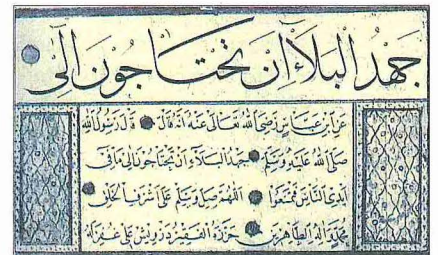 جَهْدُ الْبَلَاءِ اَنْ تَحْتَاجُونَ اِلٰى
عَنِ ابْنِ عَبَّاسٍ رَضِيَ اللهُ تَعَالٰى عَنْهُ اَنَّهُ قَالَ قَالَ رَسُولُ اللهِ
صَلَّى اللهُ عَلَيْهِ وَسَلَّمَ جَهْدُ الْبَلَاءِ اَنْ تَحْتَاجُونَ اِلٰى مَا فِى
اَيْدِى النَّاسِ فَتُمْنَعُوا اَللّٰهُمَّ صَلِّ وَسَلِّمْ عَلٰى اَشْرَفِ الْخَلْقِ
مُحَمَّدٍ وَاٰلِهِ الطَّاهِرِينَ حَرَّرَهُ الْفَقِيرُ دَرْوِيشْ عَلِى